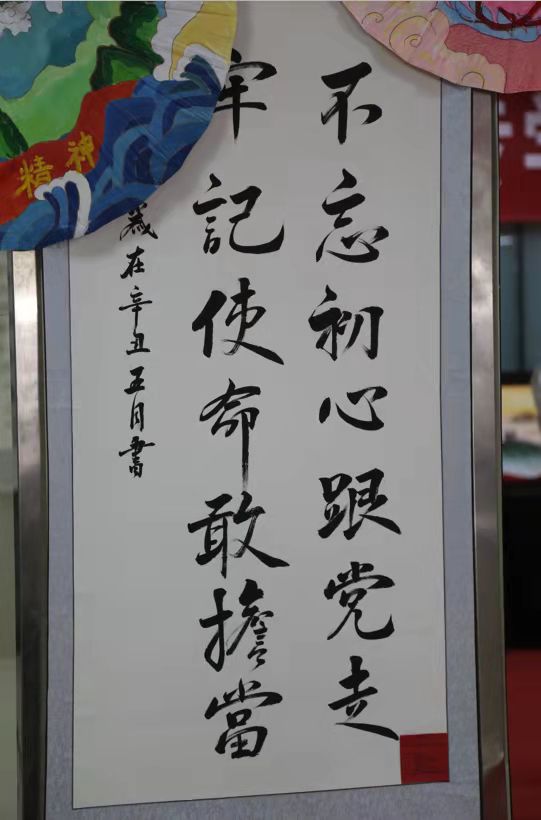 不忘初心跟党走
牢記使命敢擔當
歲在辛丑五月書
精神